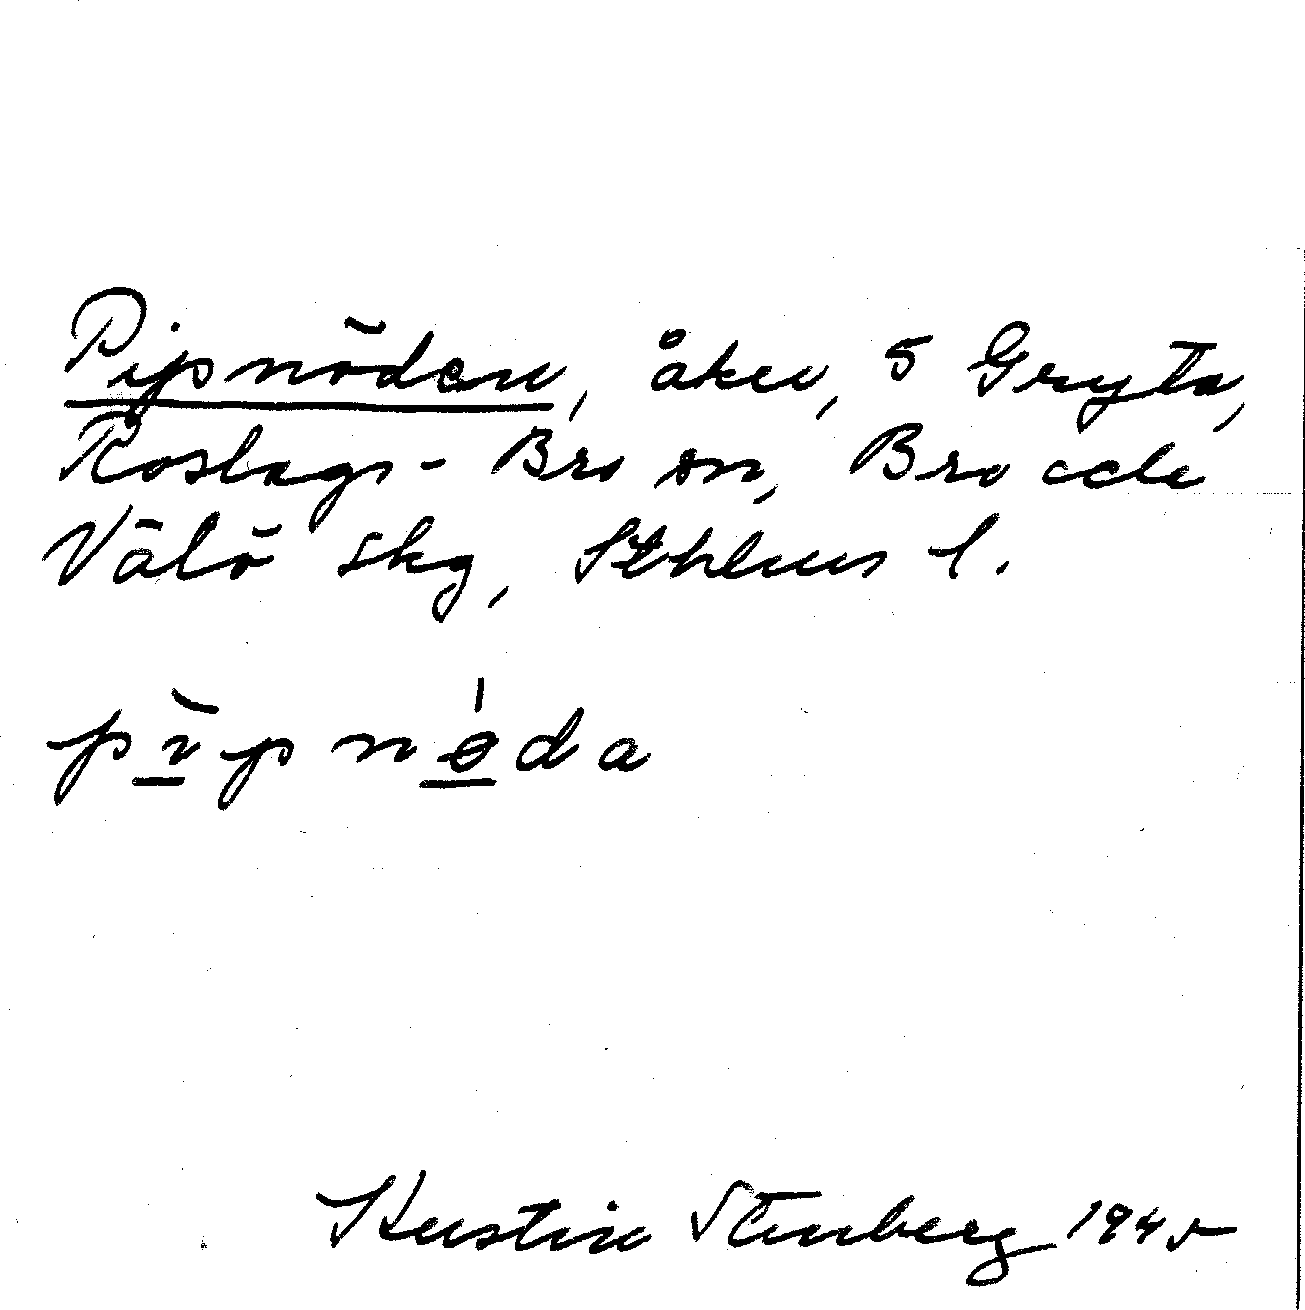 Pipnöden, åker, 5 Gryta,
Roslags-Bro sn, Bro och
Vätö skg, Sthlms l.
pìpnø̍da
Kerstin Stenberg 1945